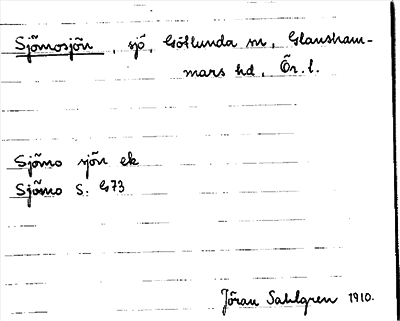 Sjömosjön, sjö, Götlunda sn, Glansham-
mars hd, Ör. l.
Sjömo sjön ek
Sjömo S: G73
Jöran Sahlgren 1910.